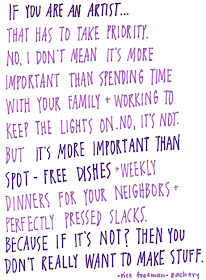 IF YOU ARE AN ARTIST...
THAT HAS TO TAKE PRIORITY.
NO, I DON'T MEAN IT'S MORE
IMPORTANT THAN SPENDING TIME
WITH YOUR FAMILY + WORKING TO
KEEP THE LIGHTS ON. NO, IT'S NOT.
BUT IT'S MORE IMPORTANT THAN
SPOT-FREE DISHES + WEEKLY
DINNERS FOR YOUR NEIGHBORS +
PERFECTLY PRESSED SLACKS.
BECAUSE IF IT'S NOT? THEN YOU
DON'T REALLY WANT TO MAKE STUFF.
•rice freeman-zachery